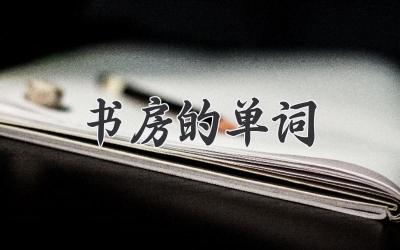 书房的单词